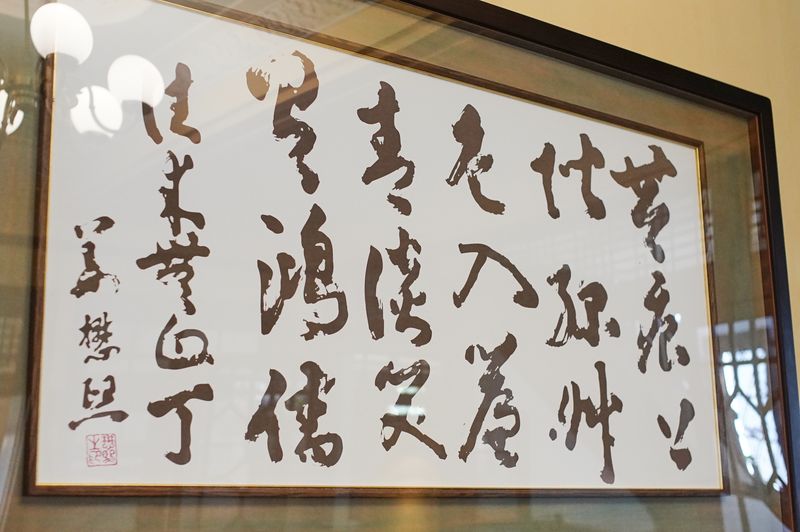 苔痕上
階綠艸
色入簾
青談笑
有鴻儒
往來無白丁